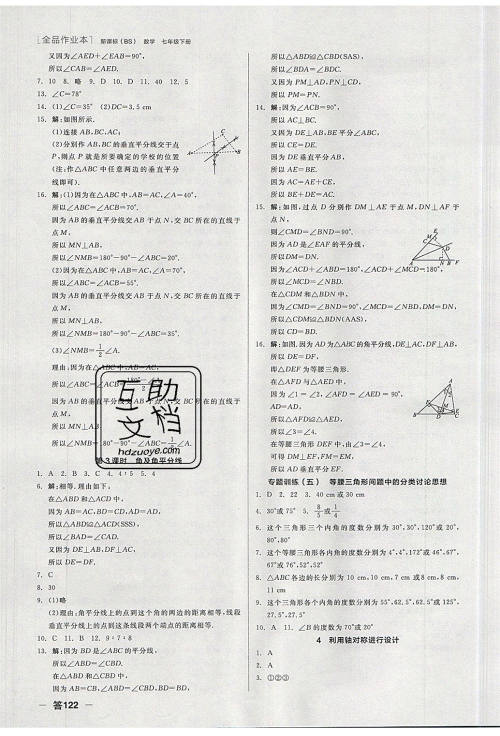 [全品作业本] 新课标(BS) 数学 七年级下册
又因为∠AED+∠EAB=90°,
所以∠CAB=∠AED.
7. 10 8. 略 9. D 10. D 11. 40 12. 5
13. ∠C=78°
14. (1)∠C=35° (2)DC=3.5 cm
15. 解:如图所示.
(1)连接AB,BC,AC;
(2)分别作AB,BC的垂直平分线交于点
P,则点P就是所要确定的学校的位置
(注:作△ABC中任意两边的垂直平分
线即可).
16. 解:(1)因为在△ABC中,AB=AC,∠A=40°,
所以∠ABC=∠ACB=70°.
因为AB的垂直平分线交AB于点N,交BC所在的直线于
点M,
所以MN⊥AB,
所以∠NMB=180°-90°-∠ABC=20°.
(2)因为在△ABC中,AB=AC,∠A=70°,
所以∠ABC=∠ACB=55°.
因为AB的垂直平分线交AB于点N,交BC所在的直线于
点M,
所以MN⊥AB,
所以∠NMB=180°-90°-∠ABC=35°.
(3)∠NMB=1/2∠A.
理由:因为在△ABC中,AB=AC,
所以∠ABC=∠ACB=
因为AB的垂直平分线交AB于点N,交BC所在的直线于
点M,
所以MN⊥AB,
所以∠NMB=180°-90°-∠ABC=1/2∠A.
互助文档
hdzuoye.com
第3课时 角及角平分线
1. A 2. B 3. C 4. 4 5. 4
6. 解:相等.理由如下:
在△ABD和△ACD中,
因为AB=AC,BD=CD,AD=AD,
所以△ABD≌△ACD(SSS),
所以∠BAD=∠CAD.
又因为DE⊥AB,DF⊥AC,
所以DE=DF.
7. C
8. 30
9. (1)略
(2)理由:角平分线上的点到这个角的两边的距离相等,线段
垂直平分线上的点到这条线段两个端点的距离相等.
10. C 11. B 12. 9:7:8
13. 解:因为BD是∠ABC的平分线,
所以∠ABD=∠CBD.
在△ABD和△CBD中,
因为AB=CB,∠ABD=∠CBD,BD=BD,
答122
所以△ABD≌△CBD(SAS),
所以∠ADB=∠CDB.
又因为PM⊥AD,PN⊥CD,
所以PM=PN.
14. 解:因为∠ACB=90°,
所以AC⊥BC.
又因为DE⊥AB,BE平分∠ABC,
所以CE=DE.
因为DE垂直平分AB,
所以AE=BE.
因为AC=AE+CE,
所以BE+DE=AC.
15. 解:如图,过点D分别作DM⊥AE于点M,DN⊥AF于
点N,
则∠CMD=∠BND=90°.
因为AD是∠EAF的平分线,
所以DM=DN.
因为∠ACD+∠ABD=180°,∠ACD+∠MCD=180°,
所以∠MCD=∠NBD.
在△CDM和△BDN中,
因为∠CMD=∠BND=90°,∠MCD=∠NBD,DM=DN,
所以△CDM≌△BDN(AAS),
所以CD=BD.
16. 解:如图,因为AD为△ABC的角平分线,DE⊥AC,DF⊥AB,
所以DE=DF,
即△DEF为等腰三角形.
在△AFD与△AED中,
因为∠1=∠2,∠AFD=∠AED=90°,
AD=AD,
所以△AFD≌△AED,
所以∠3=∠4.
在等腰三角形DEF中,由∠3=∠4,
可得DM⊥EF,FM=EM,
所以AD垂直平分EF.
专题训练(五) 等腰三角形问题中的分类讨论思想
1. D 2. 22 3. 40 cm或30 cm
4. 30°或75° 5. 8/5或1/4
6. 这个三角形三个内角的度数分别为30°,30°,120°或20°,
80°,80°
7. 这个等腰三角形各内角的度数分别为4°,4°,172°或46°,67°,
67°或76°,52°,52°
8. △ABC各边的长分别为10 cm,10 cm,7 cm或8 cm,8 cm,
11 cm
9. 这个三角形各个内角的度数分别为55°,62.5°,62.5°或125°,
27.5°,27.5°
10. A 11. ∠B的度数为70°或20°
4 利用轴对称进行设计
1. A
2. A
3. ①②③